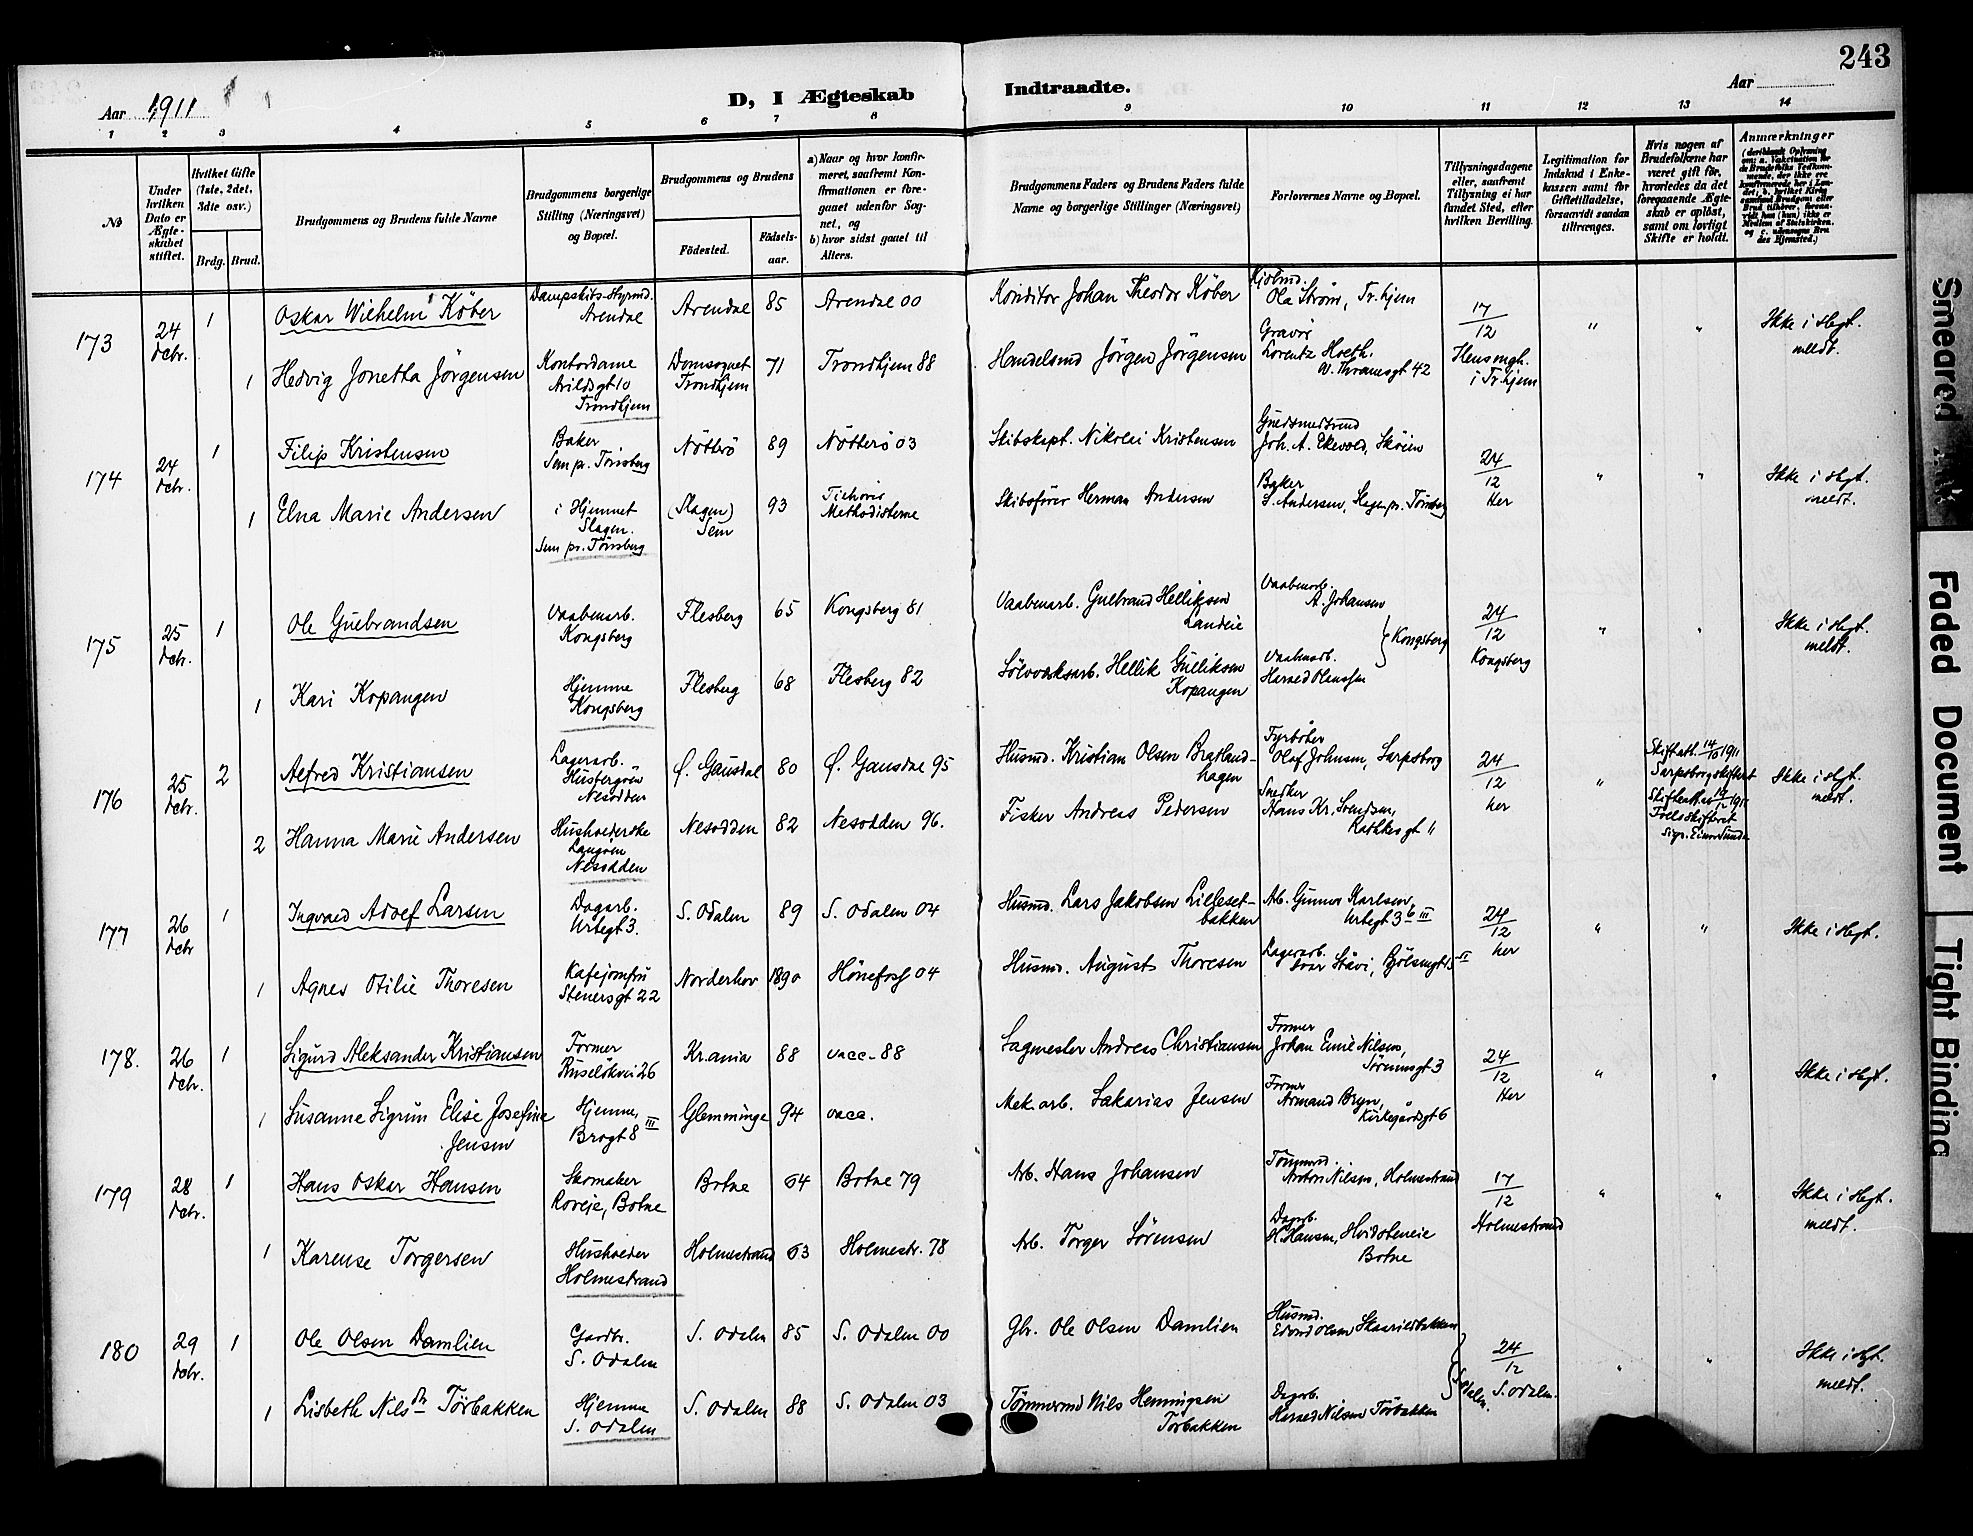 243
Aar 1911
D, I Ægteskab Indtraadte.
Aar
1 2 3 4 5 6 7 8 9 10 11 12 13 14
No
Under hvilken Dato er Ægteskabet stiftet.
Hvilket Gifte (1ste, 2det, 3dte osv.)
Brdg. Brud.
Brudgommens og Brudens fulde Navne
Brudgommens borgerlige Stilling (Næringsvei) og Bopæl.
Brudgommens og Brudens
Fødested. Fødselsaar.
a) Naar og hvor konfirmeret, saafremt Konfirmationen er foregaaet udenfor Sognet, og
b) hvor sidst gaaet til Alters.
Brudgommens Faders og Brudens Faders fulde Navne og borgerlige Stillinger (Næringsvei)
Forlovernes Navne og Bopæl.
Tillysningsdagene eller, saafremt Tillysning ei har fundet Sted, efter hvilken Bevilling.
Legitimation for Indskud i Enkekassen samt for Giftetilladelse, forsaavidt saadan tiltrænges.
Hvis nogen af Brudefolkene har været gift før, hvorledes da det foregaaende Ægteskab er opløst, samt om lovligt Skifte er holdt.
Anmærkninger
173 24 dcbr.
1 Oskar Wilhelm Köber
Dampskibs-Styrmd. Arendal
Arendal 85 Arendal 00
Konditor Johan Theodor Köber
Kjöbmd. Ola Ström, Tr.hjem
17/12 " " Ikke i slgt. meldt.
1 Hedvig Jonetta Jörgensen
Kontordame Arildsgt 10 Trondhjem
Domsognet Trondhjem 71 Trondhjem 88
Handelsmd Jörgen Jörgensen
Gravör Lorentz Hoeth. V. Thramsgt 42
i Tr.hjem
174 24 dcbr.
1 Filip Kristensen
Baker Sem pr. Tönsberg
Nötterö 89 Nötterö 03
Skibskapt. Nikolai Kristensen
Guldsmedsvend Joh. A. Ekevold, Sköien
24/12 Her " " Ikke i slgt. meldt.
1 Elna Marie Andersen
i Hjemmet Slagen. Sem pr. Tönsberg
(Slagen) Sem 93 Tilhörer Methodisterne
Skibsförer Herman Andersen
Baker S. Andersen, Slagen pr. Tönsberg
175 25 dcbr.
1 Ole Gulbrandsen
Vaabenarb. Kongsberg
Flesberg 65 Kongsberg 81
Vaabenarb. Gulbrand Helliksen Landeie
Vaabenarb. A. Johansen } Kongsberg
24/12 Kongsberg " " Ikke i slgt. meldt.
1 Kari Kopangen
Hjemme Kongsberg
Flesberg 68 Flesberg 82
Sölvverksarb. Hellik Gulliksen Kopangen
Vaabenarb. Harald Olausen
176 25 dcbr.
2 Alfred Kristiansen
Lagerarb. Nesodden
Ö. Gausdal 80 Ö. Gausdal 95
Husmd. Kristian Olsen Bratlandhagen
Fyrböter Olaf Johnsen, Sarpsborg
24/12 her " Skifteatt. 14/10 1911 Sarpsborg skifteret
Ikke i slgt. meldt.
2 Hanna Marie Andersen
Husholderske Langöen Nesodden
Nesodden 82 Nesodden 96.
Fisker Andreas Pedersen
Snedker Hans Kr. Svendsen, Rathkesgt 11
Follo Skifteret
177 26 dcbr
1 Ingvald Adolf Larsen
Dagarb. Urtegt 3.
S. Odalen 89 S. Odalen 04
Husmd. Lars Jakobsen Lillesetbakken
Arb. Gunnar Karlsen, Urtegt 36 III
24/12 her " " Ikke i slgt.
1 Agnes Otilie Thoresen
Kaféjomfru Stenersgt 22
Norderhov 1890 Hönefoss 04
Husmd. August Thoresen
Lagerarb. Ivar Stuvi, Bjölsengt 15 II
178. 26 dcbr.
1 Sigurd Aleksander Kristiansen
Former Ruselökvei 26
Kr.ania 88 vacc. 88
Sagmester Andreas Christiansen
Former Johan Emil Nilsen, Sörumsgt 3
24/12 Her " " Ikke i slgt.
1 Susanne Sigrun Elise Josefine Jensen
Hjemme, Brogt 8 III
Glemminge 94 vacc.
Mek. arb. Sakarias Jensen
Former Armand Bryn, Kirkegårdsgt 6
179 28 dcbr.
1 Hans Oskar Hansen
Skomaker Roveje, Botne
Botne 64 Botne 79
Arb. Hans Johansen
Tömmermd. Anton Nilsen, Holmestrand
17/12 Holmestrand " " Ikke i slgt. meldt.
1 Karense Torgersen
Husholder Holmestrand
Holmestrand 63 Holmestr. 78
Arb. Torger Sörensen
Dagarb. H. Hansen, Hvidsteneie Botne
180 29 dcbr.
1 Ole Olsen Damlien
Gaardbr. S. Odalen
S. Odalen 85 S. Odalen 00
Gbr. Ole Olsen Damlien
Husmd. Edvard Olsen Skaarildbakken
} S. Odalen.
24/12 S. Odalen. " " Ikke i slgt. meldt.
1 Lisbeth Nilsdtr Törbakken
Hjemme S. Odalen
S. Odalen 88 S. Odalen 03
Tömmermd Nils Henningsen Törbakken
Dagarb. Harald Nilsen Törbakken
Smeared Ink
Faded Document
Tight Binding